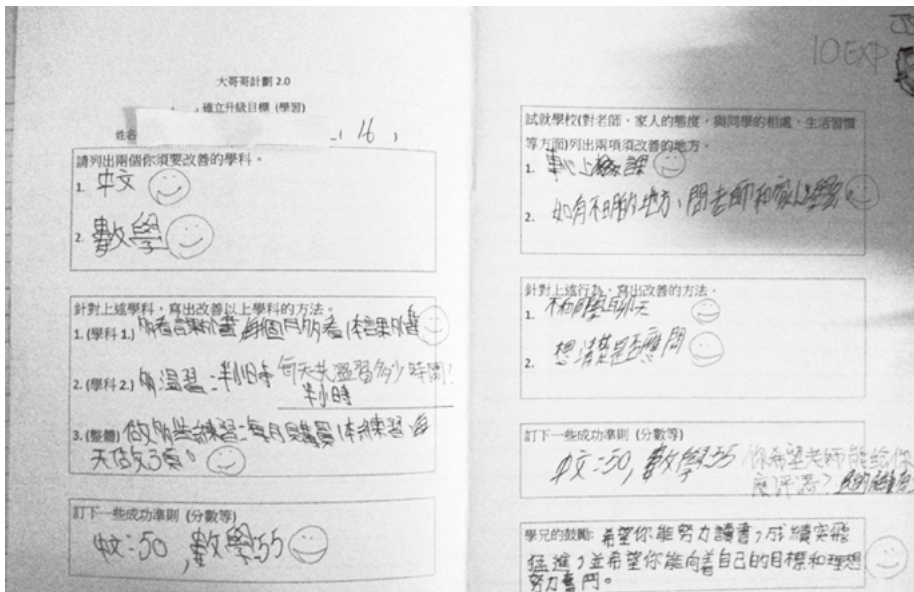 大哥哥計劃 2.0
確立升級目標 (學習)
姓名
( 16 )
請列出兩個你須要改善的學科。
1. 中文
2. 數學
針對上述學科，寫出改善以上學科的方法。
1. (學科 1.) 多看課外書 每個月多看1本課外書
2. (學科 2.) 多溫習：半小時 每天共溫習多少時間？
半小時
3. (整體) 做多些練習：每月購買1本練習，每
天做3頁。
訂下一些成功準則 (分數等)
中文：50，數學55
10EXP
試就學校(對老師、家人的態度，與同學的相處，生活習慣
等方面)列出兩項須改善的地方。
1. 專心上課
2. 如有不明的地方，問老師和家人
針對上述行為，寫出改善的方法。
1. 不和同學聊天
2. 想清楚是否應問
訂下一些成功準則 (分數等)
中文：50，數學55 你希望老師能給你
麼評語？
學兄的鼓勵: 希望你能努力讀書，成績突飛
猛進，並希望你能向着自己的目標和理想
努力奮鬥。